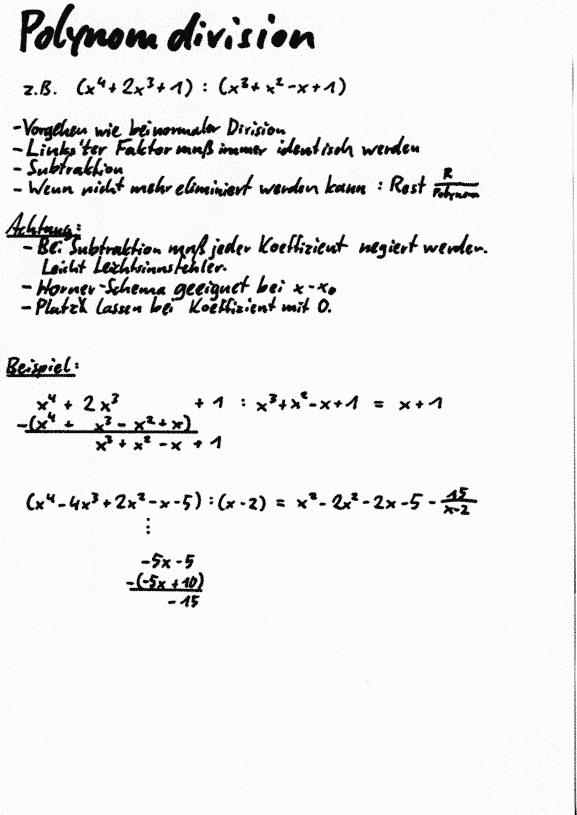 Polynomdivision
z.B. (x⁴+2x³+1) : (x³+x²-x+1)
-Vorgehen wie bei normaler Division
-Links'ter Faktor muß immer identisch werden
-Subtraktion
-Wenn nicht mehr eliminiert werden kann : Rest R/Polynom
Achtung:
-Bei Subtraktion muß jeder Koeffizient negiert werden.
Leicht Leichtsinnsfehler.
-Horner-Schema geeignet bei x-x₀
-Platz lassen bei Koeffizient mit 0.
Beispiel:
x⁴ + 2x³ + 1 : x³+x²-x+1 = x+1
-(x⁴ + x³ - x² + x)
x³ + x² - x + 1
(x⁴-4x³+2x²-x-5) : (x-2) = x²-2x²-2x-5-15/x-2
⋮
-5x-5
-(-5x+10)
-15